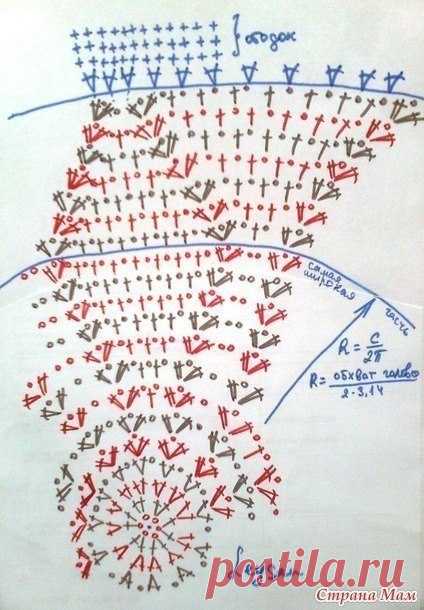 ободок
самая
широкая
часть
R = C
2π
R = обхват головы
2 · 3,14
postila.ru
Страна Мам